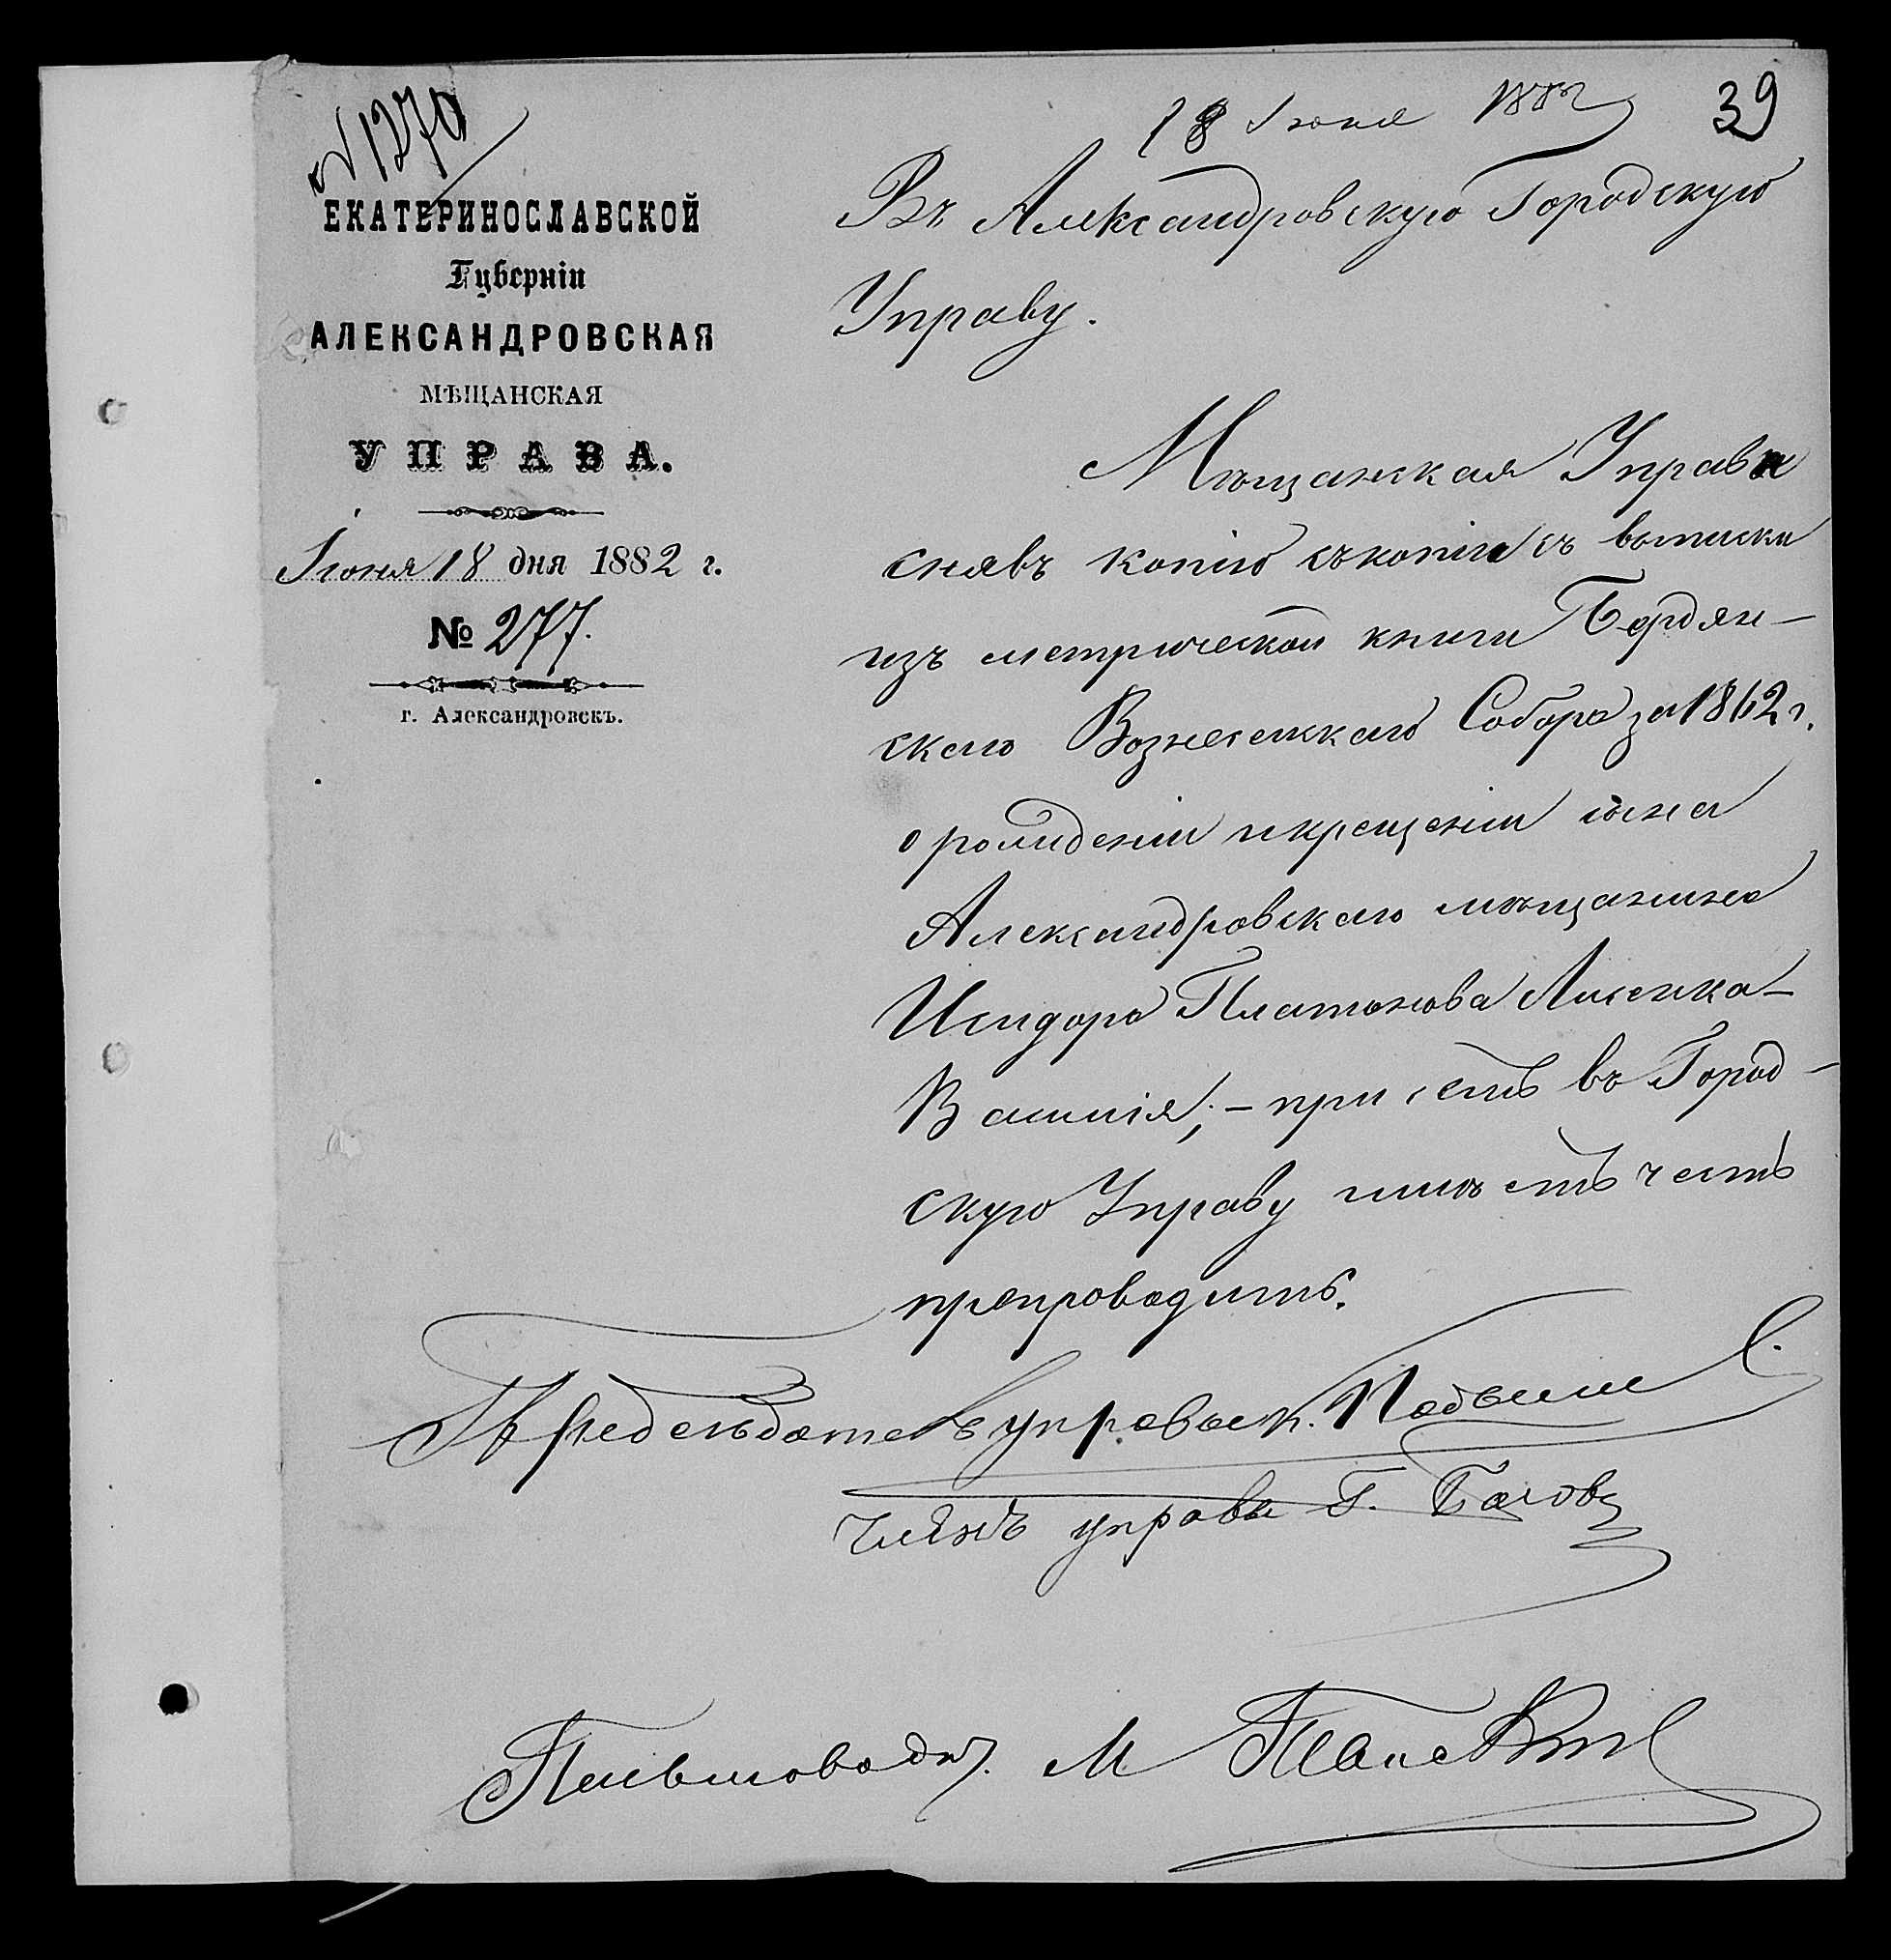 № 1270
18 Июня 1882
39
ЕКАТЕРИНОСЛАВСКОЙ
Губерніи
АЛЕКСАНДРОВСКАЯ
МѢЩАНСКАЯ
УПРАВА.
Іюня 18 дня 1882 г.
№ 277.
г. Александровскъ.
Въ Александровскую Городскую
Управу.
Мѣщанская Управа
снявъ копію съ копіи съ выписки
изъ метрической книги Бердян-
скаго Вознесенскаго Собора за 1862 г.
о рожденіи и крещеніи сына
Александровскаго мѣщанина
Исидора Платонова Лисенка-
Вассилія; - при семъ въ Город-
скую Управу имѣетъ честь
препроводить.
Предсѣдатель управы
Членъ управы Г.
Письмоводит. М